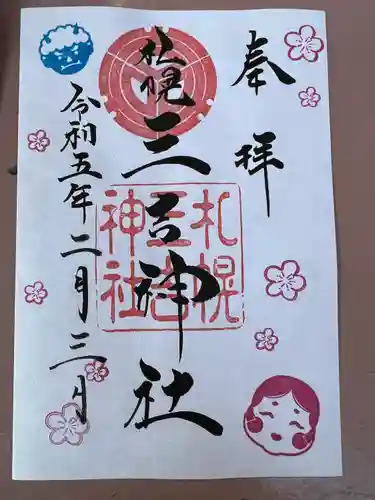 奉拝
札幌
三吉神社
札幌
三吉
神社
令和五年二月三月